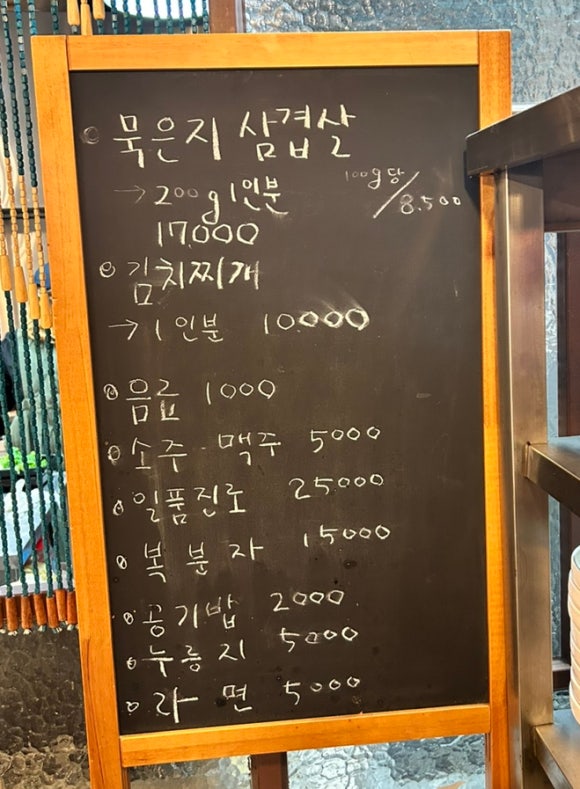 묵은지 삼겹살
→ 200g 1인분 100g당/8.500
17.000
김치찌개
→ 1인분 10000
음료 1000
소주 맥주 5000
일품진로 25000
복분자 15000
공기밥 2000
누룽지 5000
라면 5000